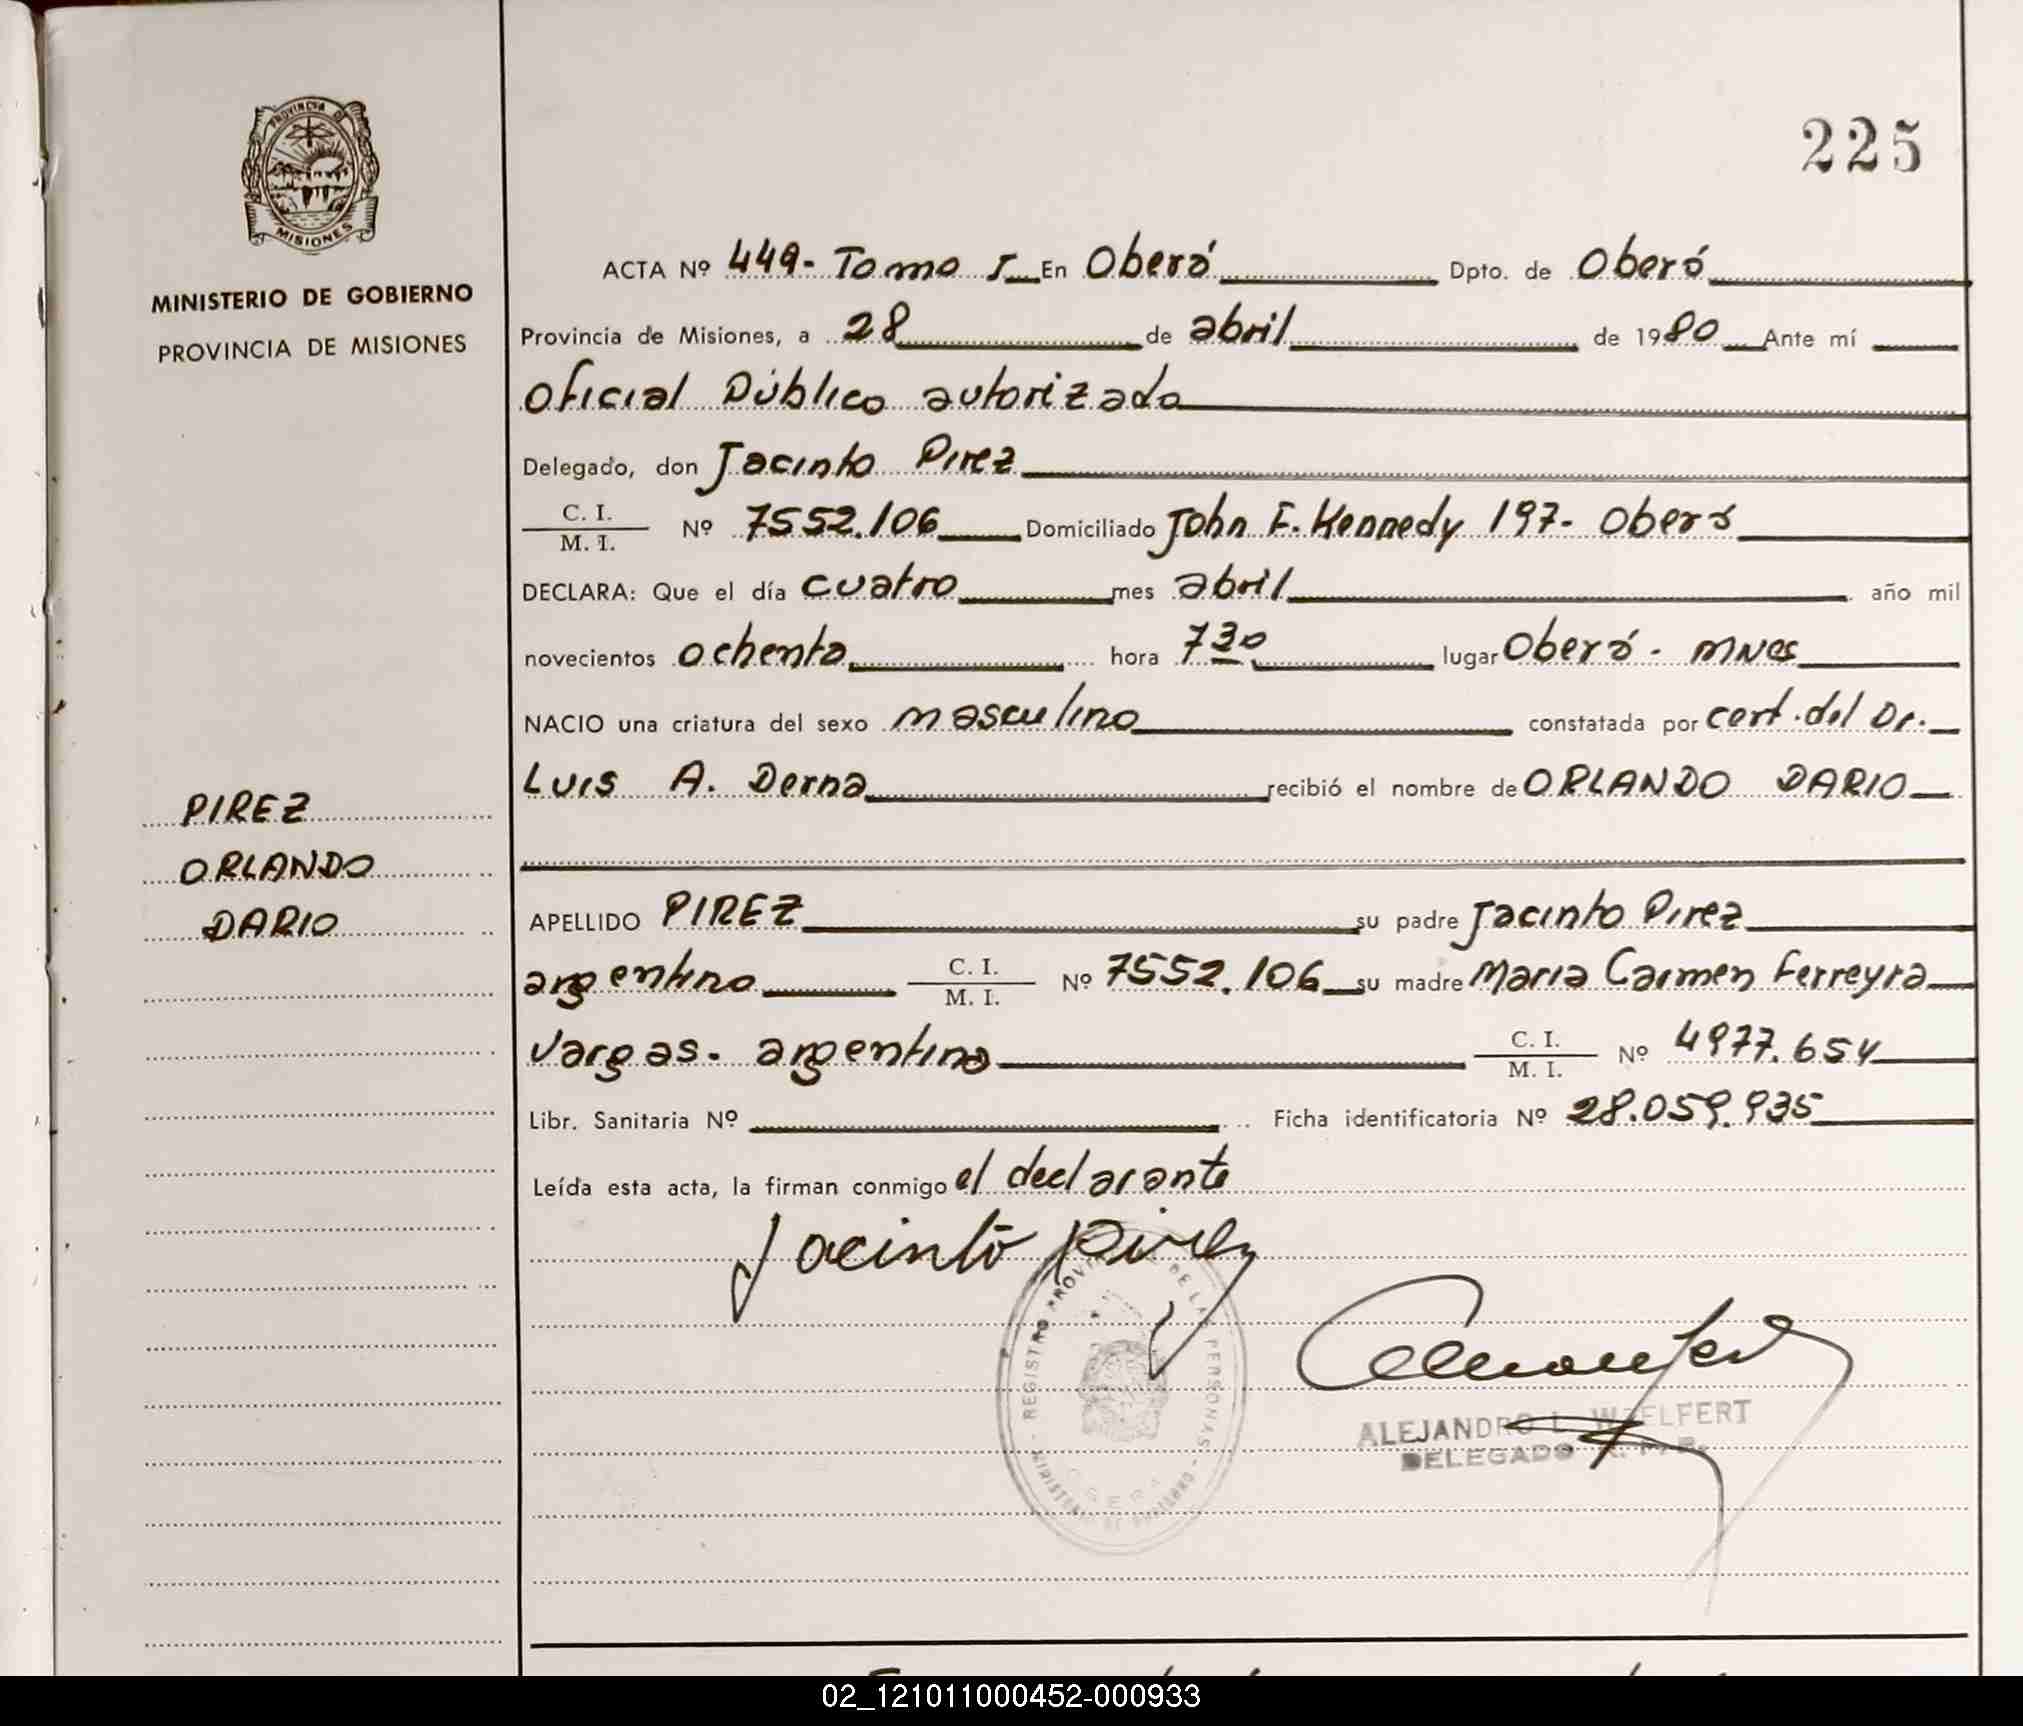 225
PROVINCIA DE
MISIONES
MINISTERIO DE GOBIERNO
PROVINCIA DE MISIONES
PIREZ
ORLANDO
DARIO
ACTA Nº 449- Tomo I En Oberá Dpto. de Oberá
Provincia de Misiones, a 28 de abril de 1980 Ante mí
Oficial Público autorizado
Delegado, don Jacinto Pirez
C. I.
M. I. Nº 7552.106 Domiciliado John F. Kennedy 197- Oberá
DECLARA: Que el día cuatro mes abril año mil
novecientos ochenta hora 7 30 lugar Oberá - Mnes
NACIO una criatura del sexo masculino constatada por cert. del Dr.
Luis A. Derna recibió el nombre de ORLANDO DARIO
APELLIDO PIREZ su padre Jacinto Pirez
argentino C. I.
M. I. Nº 7552.106 su madre Maria Carmen Ferreyra
Vargas- argentina C. I.
M. I. Nº 4977.654
Libr. Sanitaria Nº Ficha identificatoria Nº 28.059.935
Leída esta acta, la firman conmigo el declarante
Jacinto Pirez
REGISTRO PROVINCIAL DE LAS PERSONAS - MINISTERIO DE GOBIERNO -
ALEJANDRO L. WELFERT
DELEGADO
02_121011000452-000933